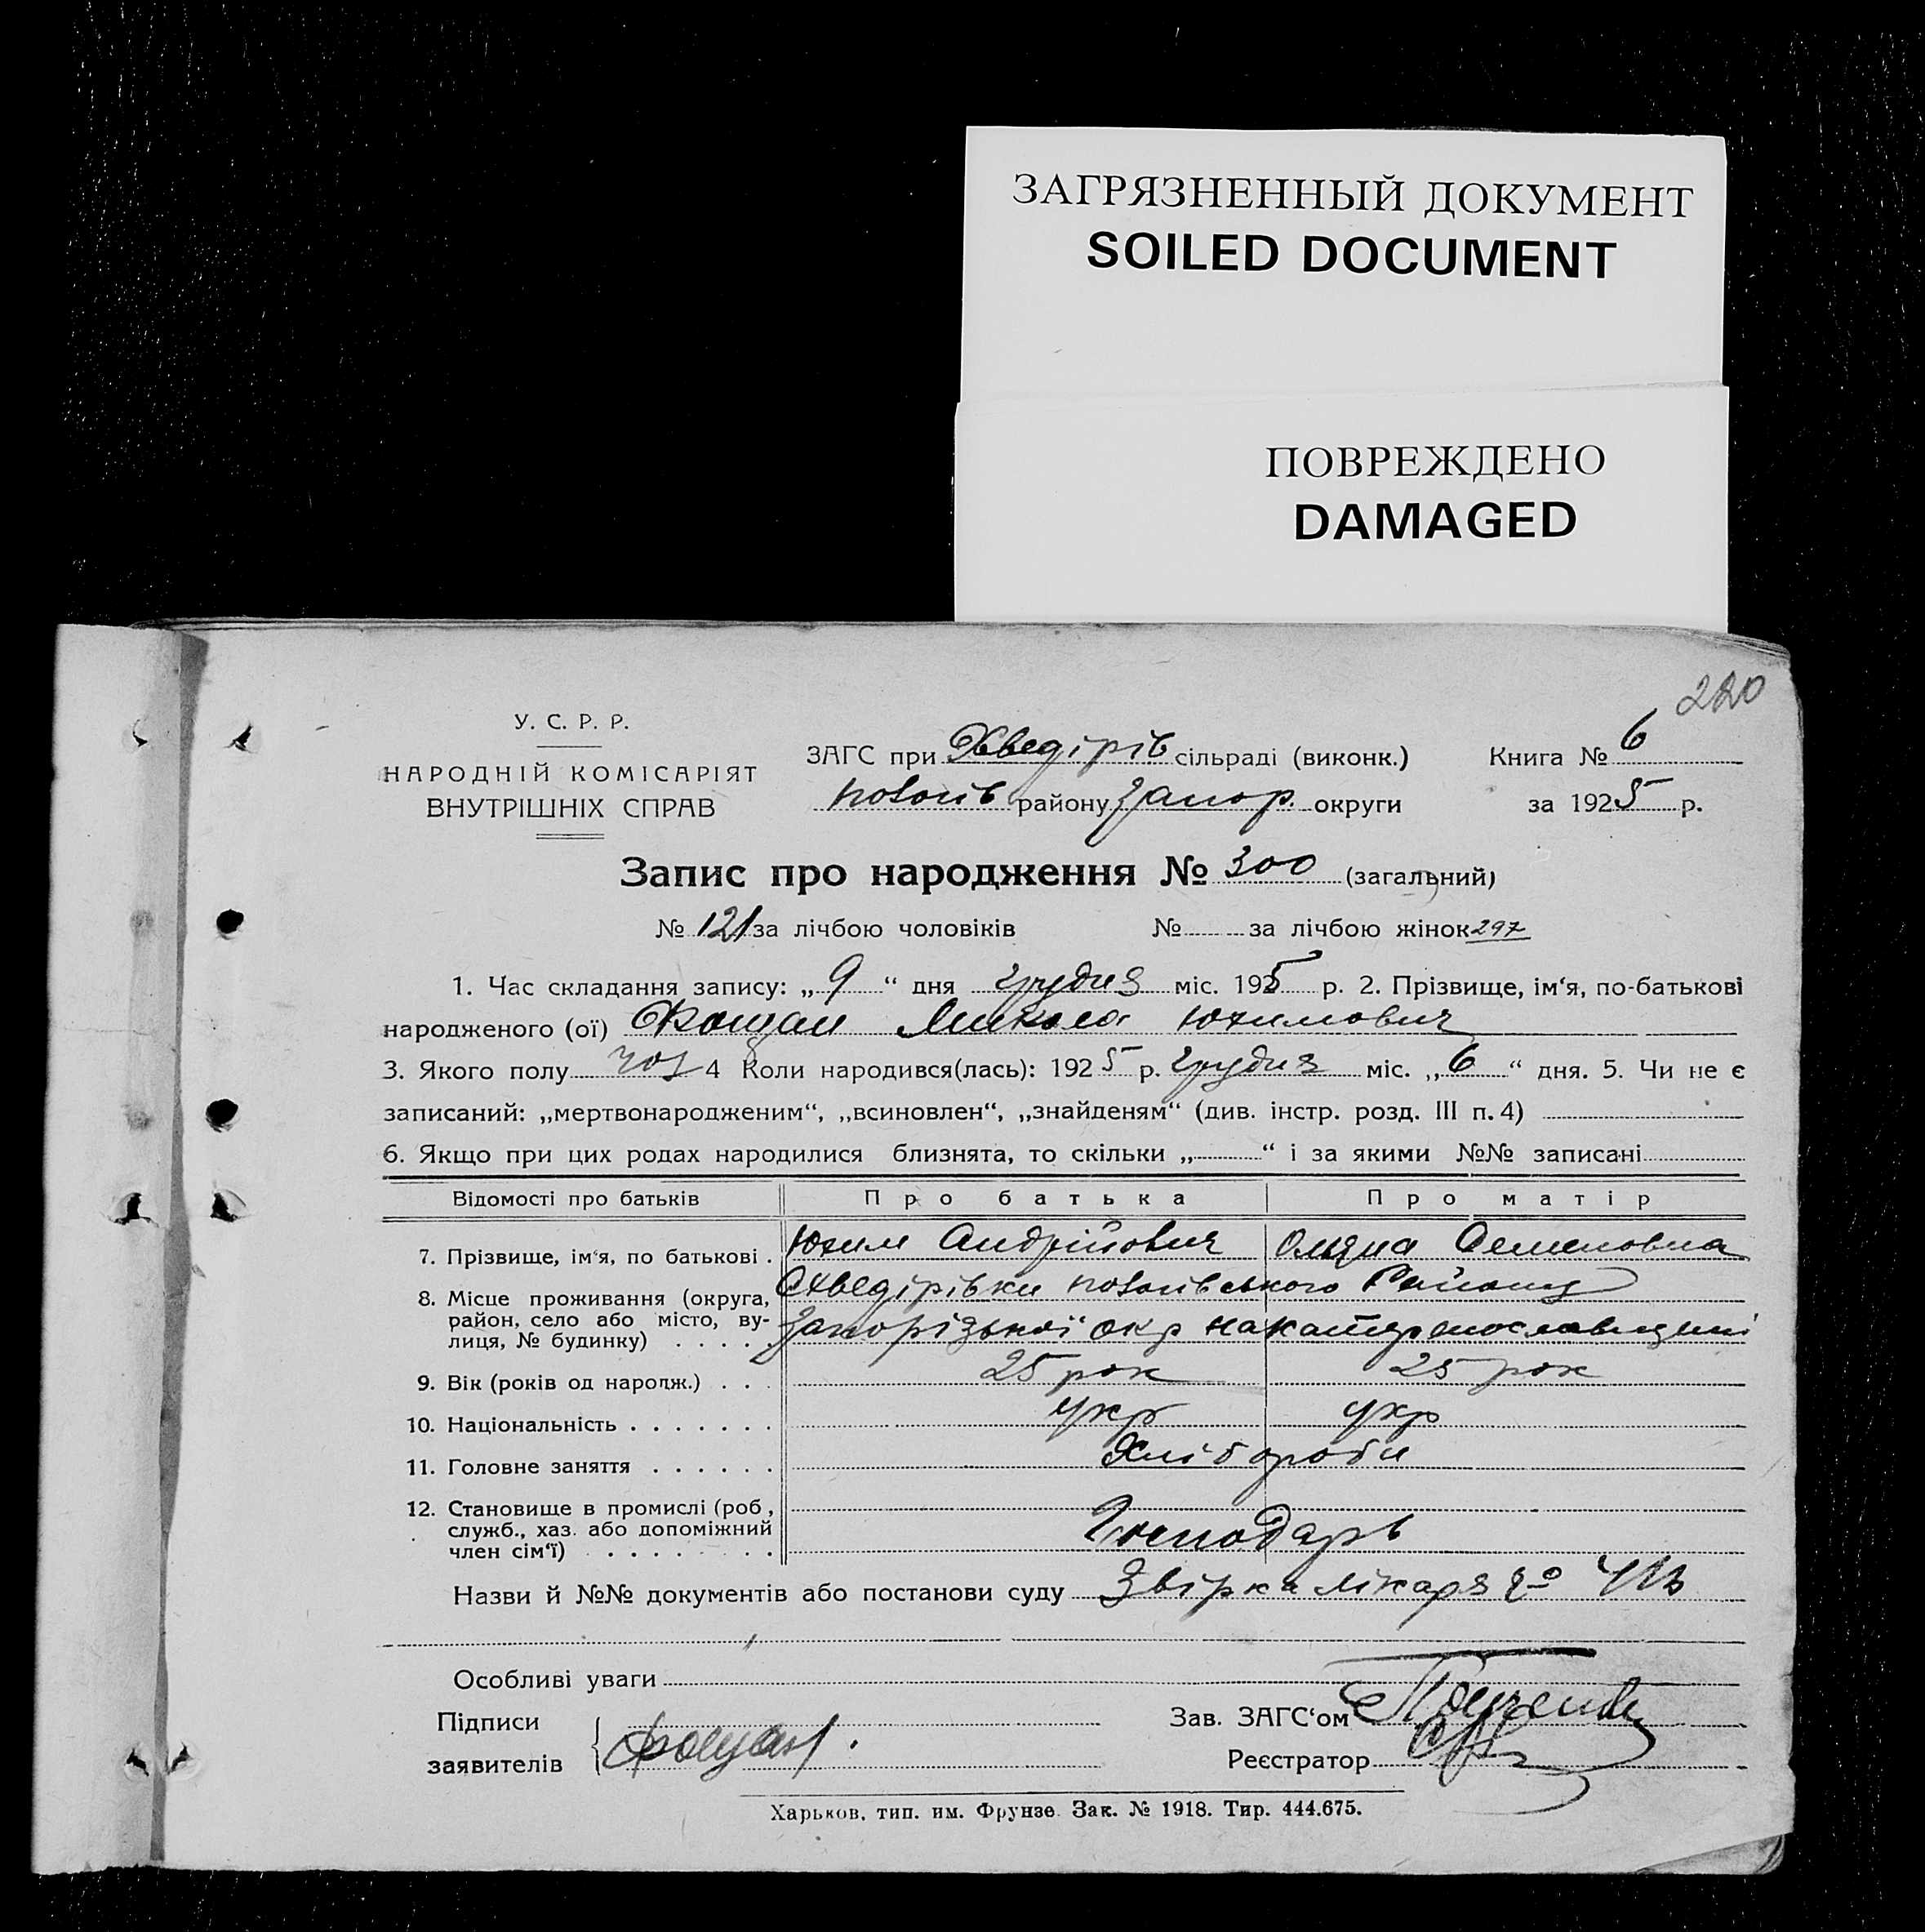 ЗАГРЯЗНЕННЫЙ ДОКУМЕНТ
SOILED DOCUMENT
ПОВРЕЖДЕНО
DAMAGED
220
У. С. Р. Р.
НАРОДНІЙ КОМІСАРІЯТ
ВНУТРІШНІХ СПРАВ
ЗАГС при Хведірів сільраді (виконк.) Книга № 6
району Запор. округи за 1925 р.
Запис про народження № 300 (загальний)
№ 121 за лічбою чоловіків № за лічбою жінок 297
1. Час складання запису: „ 9 “ дня грудня міс. 1925 р. 2. Прізвище, ім‘я, по-батькові
народженого (ої) Фощан Микола Юхимович
3. Якого полу чол 4 Коли народився(лась): 1925 р. грудня міс. „ 6 “ дня. 5. Чи не є
записаний: „мертвонародженим“, „всиновлен“, „знайденям“ (див. інстр. розд. III п. 4)
6. Якщо при цих родах народилися близнята, то скільки „ “ і за якими №№ записані
Відомості про батьків Про батька Про матір
7. Прізвище, ім‘я, по батькові . Юхим Андрійович Семеновна
8. Місце проживання (округа, район, село або місто, вулиця, № будинку) . . . . . Хведірівки Району
Запорізької окр
9. Вік (років од народж.) . . . 25 рок 25 рок
10. Національність . . . . . . . укр укр
11. Головне заняття . . . . . . Хлібороби
12. Становище в промислі (роб., служб., хаз. або допоміжний член сім‘ї) . . . . . . . . Господарь
Назви й №№ документів або постанови суду Звірка лікаря
Особливі уваги
Підписи
заявителів Фощан.
Зав. ЗАГС‘ом
Реєстратор
Харьков, тип. им. Фрунзе. Зак. № 1918. Тир. 444.675.